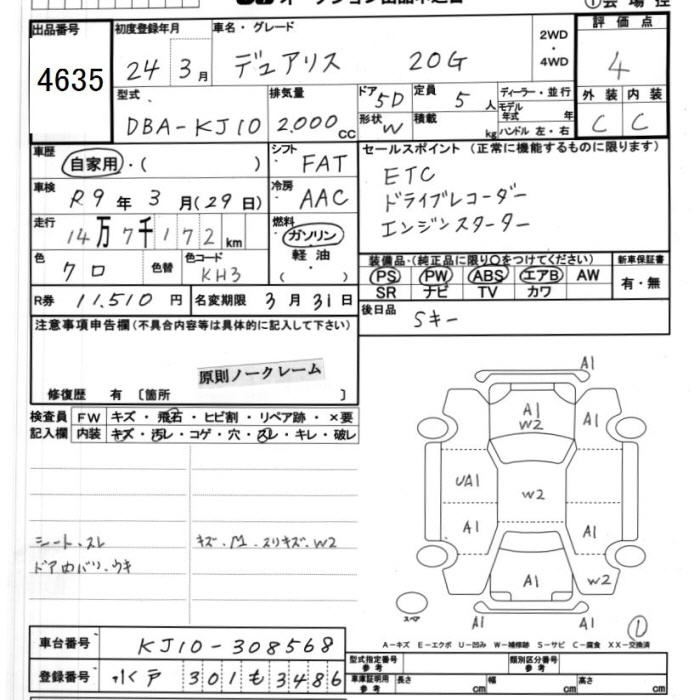 出品番号 初度登録年月 車名・グレード 2WD・4WD 評価点
4635 24年 3月 デュアリス 20G 4
型式 排気量 ドア 定員 ディーラー・並行 外装 内装
DBA-KJ10 2.000cc 5D 5人 モデル年式 年 C C
形状 W 積載 kg ハンドル 左・右
車歴 自家用・( ) シフト FAT セールスポイント (正常に機能するものに限ります)
車検 R9年 3月(29日) 冷房 AAC ETC
ドライブレコーダー
走行 14万7千172km 燃料 ガソリン エンジンスターター
軽油
( )
色 クロ 色替 色コード KH3 装備品・(純正品に限り○をつけてください) 新車保証書
PS PW ABS エアB AW 有・無
SR ナビ TV カワ
R券 11,510円 名変期限 3月31日 後日品 Sキー
注意事項申告欄(不具合内容等は具体的に記入して下さい)
原則ノークレーム
修復歴 有 〔箇所 〕
検査員 FW キズ・飛石・ヒビ割・リペア跡・×要
記入欄 内装 キズ・汚レ・コゲ・穴・スレ・キレ・破レ
シート・スレ キズ.M.スリキズ.W2
ドア内バリ.ウキ
A1
A1 A1
W2
UA1 W2
A1 A1
A1 W2
スペア A1 A1
A-キズ E-エクボ U-凹み W-補修跡 S-サビ C-腐食 XX-交換済
車台番号 KJ10-308568
登録番号 水戸 301 も 3486
型式指定番号 参考 類別区分番号 参考
車庫証明用 参考 長さ cm 幅 cm 高さ cm